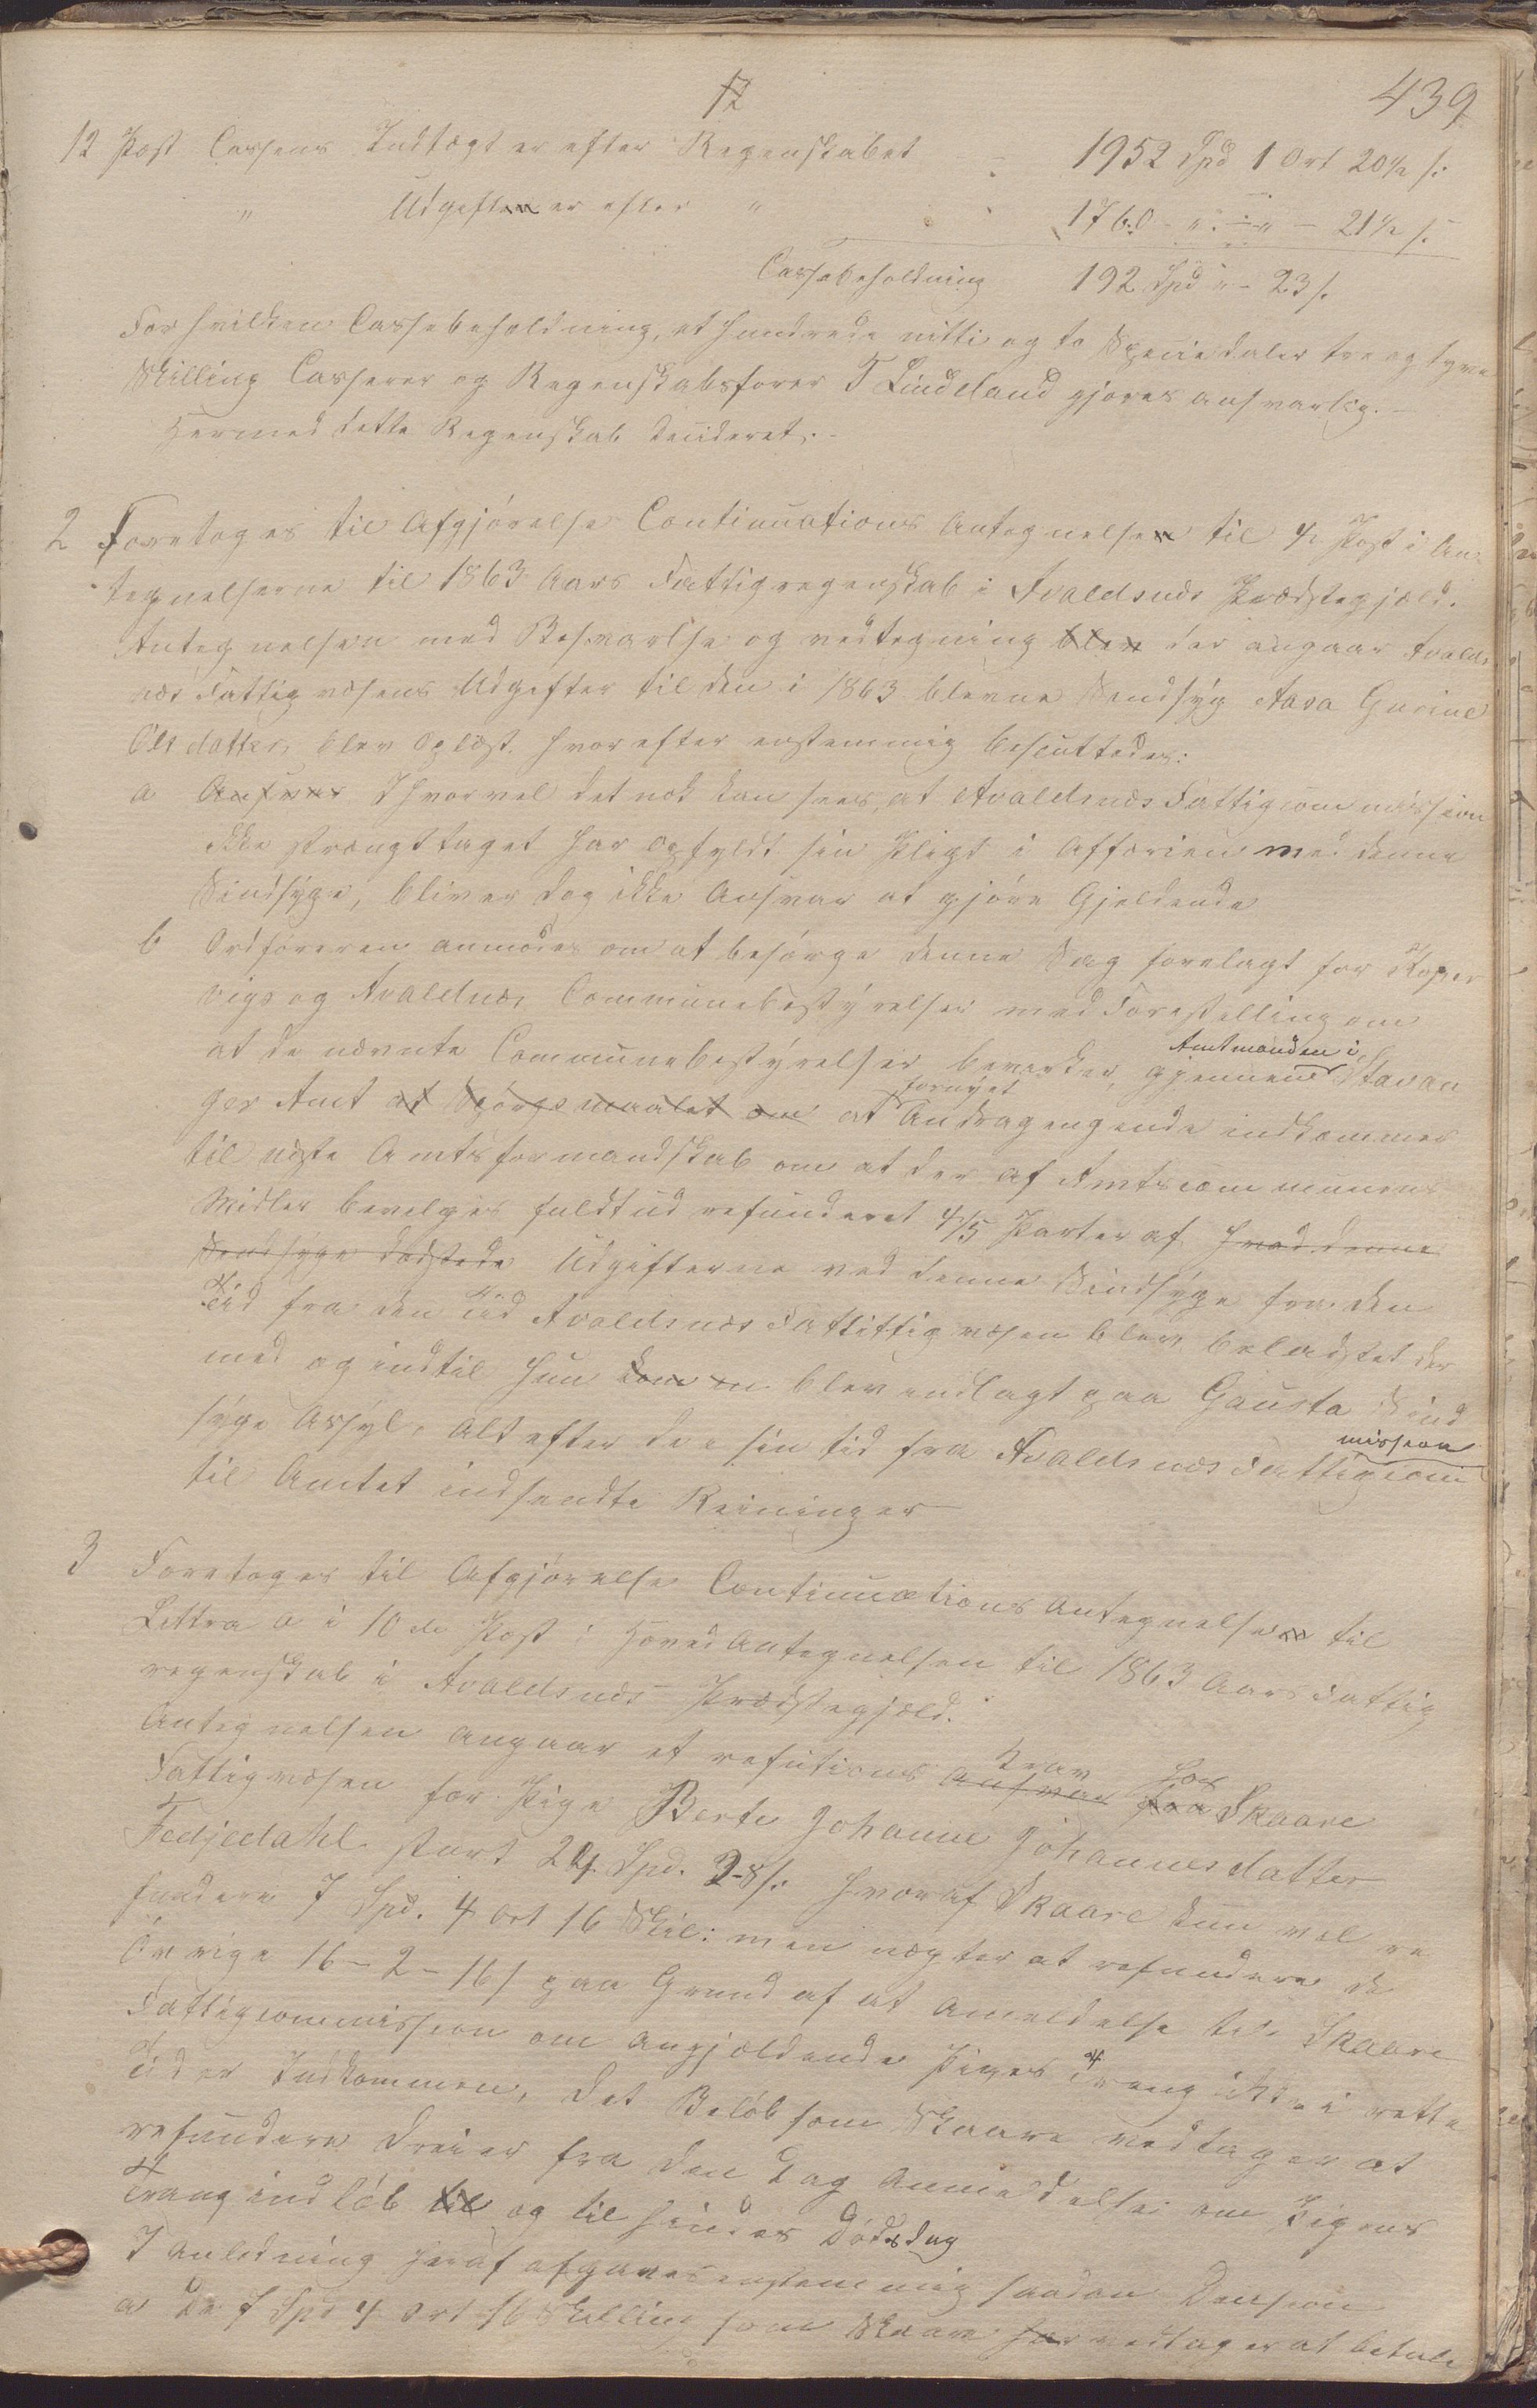 12
439
12 Post Cassens Indtægt er efter Regenskabet - 1952 Spd 1 Ort 20½ s:
" Udgiften er efter " 1760 - " - " - 21½ s.
Cassabeholdning 192 Spd " - 23 s.
For hvilken Cassebeholdning, et hundrede nitti og to Speciedaler tre og tyve
Skilling Casserer og Regenskabsfører T Lindeland gjøres ansvarlig. -
Hermed dette Regenskab decideret. -
2 Foretoges til Afgjørelse Continuations Antegnelsen til 4 Post i An-
tegnelserne til 1863 Aars Fattigregenskab i Avaldsnæs Prædstegjæld.
Antegnelsen med Besvarelse og vedtegning blev der angaar Avalds
næs Fattigvæsens Udgifter til den i 1863 blevne Sindsyg Aasa Gurine
Olsdatter, blev Oplæst. hvorefter enstemmig besluttedes:
a Ansvar Ihvorvel det nok kan sees, at Avaldsnæs Fattigcommission
ikke strængt taget har opfyldt sin Pligt i Affærien med denne
Sindsyge, bliver dog ikke Ansvar at gjøre Gjeldende
b Ordføreren anmodes om at besørge denne Sag forelagt for Koper
vigs og Avaldsnæs Communebestyrelser med Forestilling om
at de nævnte Communebestyrelser bevirker, gjennem Amtmanden i Stavan
ger Amt at Spørgsmaalet om at fornyet Andragengende indkommer
til næste Amtsformandskab om at der af Amtscommunens
Midler bevelges fuldt ud refunderet 4/5 Parter af hvad denne
Sindsyge kostede Udgifterne ved denne Sindsyge fra den
Tid fra den tid Avaldsnæs Fattittigvæsen blev beladstet der
med og indtil hun kom in blev indlagt paa Gausta Sind
syge Assyl, Alt efter de i sin tid fra Avaldsnæs Fattigcom
mission
til Amtet indsendte Reininger
3 Foretoges til Afgjørelse Continuations Antegnelsen til
Littra a i 10de Post i Hoved Antegnelsen til 1863 Aars Fattig
regenskab i Avaldsnæs Prædstegjæld.
Antegnelsen angaar et refutions Ansvar Krav fra hos Skaare
Fattigvæsen for Pige Berte Johanne Johannesdatter
Fedjedahl stort 24 Spd. 2-8 s: hvoraf Skaare kun vel re
fundere 7 Spd. 4 Ort 16 Skil: men nægter at refundere de
Øvrige 16 - 2 - 16 s paa Grund af at Ameldelse til Skaare
Fattigcommission om angjældende Piges Trang ikke i rette
tid er Indkommen, det Beløb som Skaare vedtager at
refundere dreier fra den Dag Anmeldelse om Pigens
Trang indløb til og til hindes Dødsdag
I Anledning heraf afgaves enstemmig saadan Decision
a De 7 Spd 4 Ort 16 Skilling som Skaare har vedtager at betale